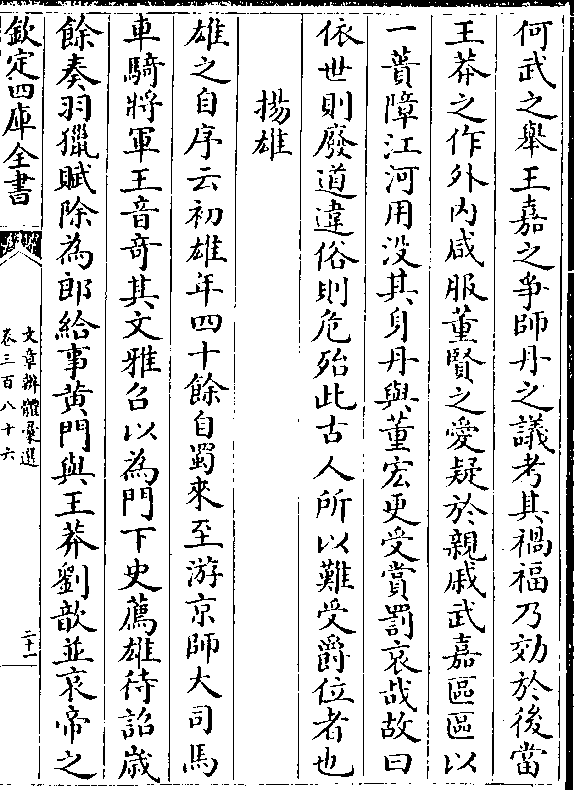 何武之舉王嘉之爭師丹之議考其禍福乃効於後當
王莽之作外内咸服董賢之愛疑於親戚武嘉區區以
一蕢障江河用没其身丹與董宏更受賞罰哀哉故曰
依世則廢道違俗則危殆此古人所以難受爵位者也
揚雄
雄之自序云初雄年四十餘自蜀來至游京師大司馬
車騎將軍王音竒其文雅召以為門下史薦雄待詔歳
餘奏羽獵賦除為郎給事黄門與王莽劉歆並哀帝之
欽定四庫全書
文章辨體彚選
卷三百八十六
二十一